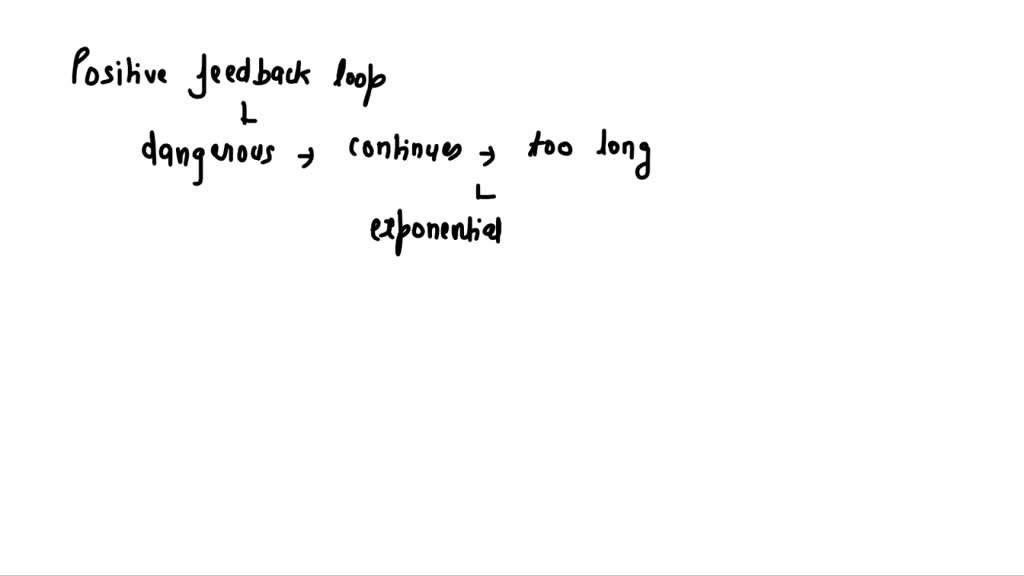 Positive feedback loop
dangerous → continues → too long
exponential